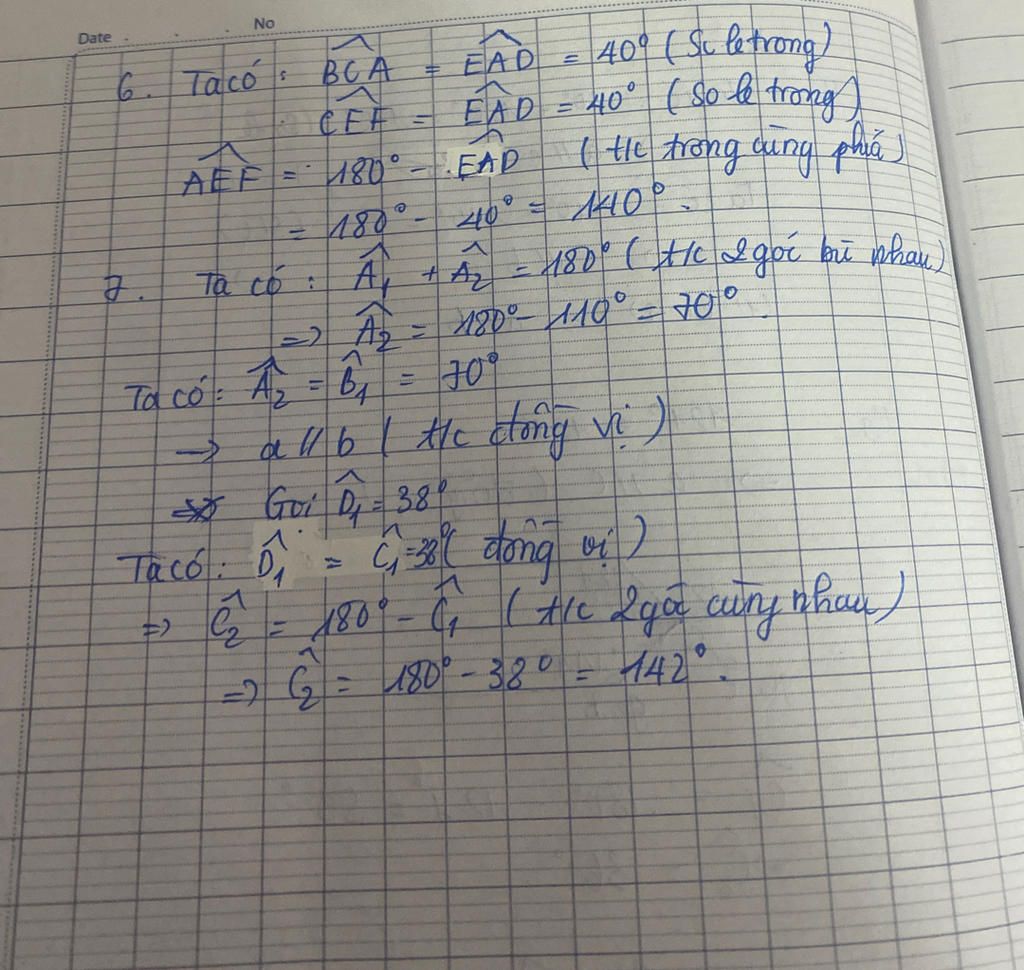 Date . . . No
6. Ta có: BCA = EAD = 40° (Sc le trong)
CEF = EAD = 40° (So le trong)
AEF = 180° - EAD (t/c trong cùng phiá)
= 180° - 40° = 140°.
7. Ta có: Â1 + Â2 = 180° (t/c 2 góc bù nhau)
=> Â2 = 180° - 110° = 70°.
Ta có: Â2 = B̂1 = 70°
-> a // b (t/c đồng vị)
Gọi D̂1 = 38°
Ta có: D̂1 = Ĉ1 = 38° (đồng vị)
=> Ĉ2 = 180° - Ĉ1 (t/c 2 góc cùng nhau)
=> Ĉ2 = 180° - 38° = 142°.